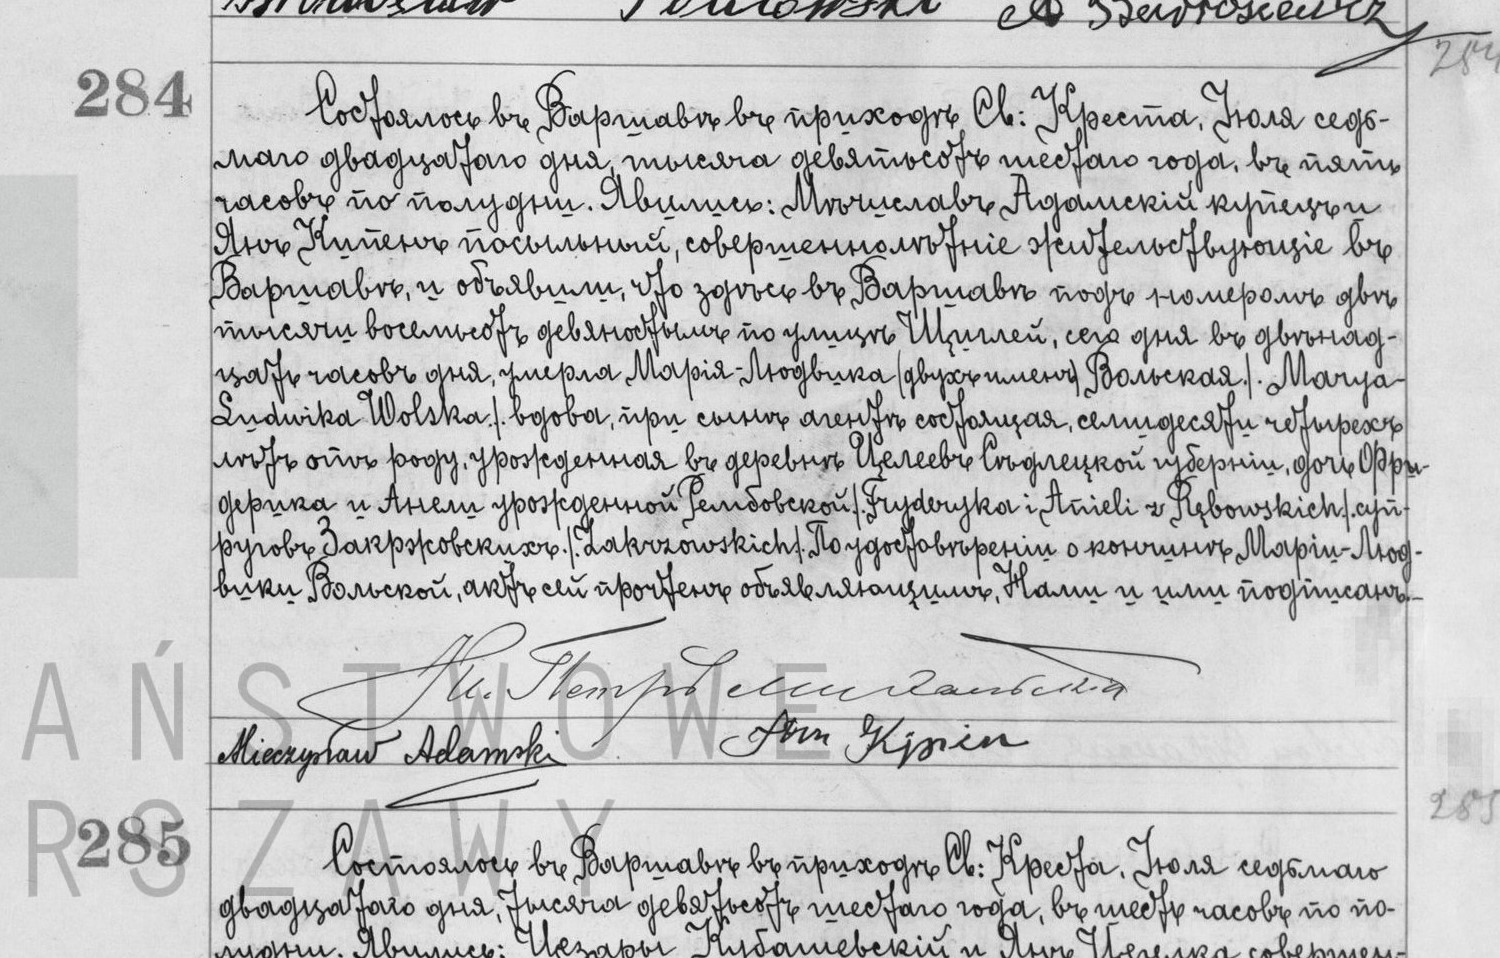 284
284
Состоялось въ Варшавѣ въ приходѣ Св: Креста, Іюля седь-
маго двадцатаго дня, тысяча девятьсотъ шестаго года, въ пять
часовъ по полудни. Явились: Мѣчиславъ Адамскій купецъ и
Янъ Кипенъ посыльный, совершеннолѣтніе жительствующіе въ
Варшавѣ, и объявили, что здѣсь въ Варшавѣ подъ номеромъ двѣ
тысячи восемьсотъ девяностымъ по улицѣ Щиглей, сего дня въ двѣнад-
цать часовъ дня, умерла Марія-Людвика (двухъ именъ) Вольская /. Marya-
Ludwika Wolska /. вдова, при сынѣ агентѣ состоящая, семидесяти четырехъ
лѣтъ отъ роду, урожденная въ деревнѣ Целеевъ Сѣдлецкой губерніи, дочь Фри-
дерика и Анели урожденной Рембовской /. Fryderyka i Anieli z Rębowskich /. суп-
руговъ Закржовскихъ /. Zakrzowskich /. По удостовѣреніи о кончинѣ Маріи-Люд-
вики Вольской, актъ сей прочтенъ объявляющимъ, Нами и ими подписанъ.
Mieczysław Adamski Jan Kipien
285
285
Состоялось въ Варшавѣ въ приходѣ Св: Креста, Іюля седьмаго
двадцатаго дня, тысяча девятьсотъ шестаго года, въ шесть часовъ по по-
лудни. Явились: Цезары Кубашевскій и Янъ совершен-
AŃSTWOWE
RSZAWY